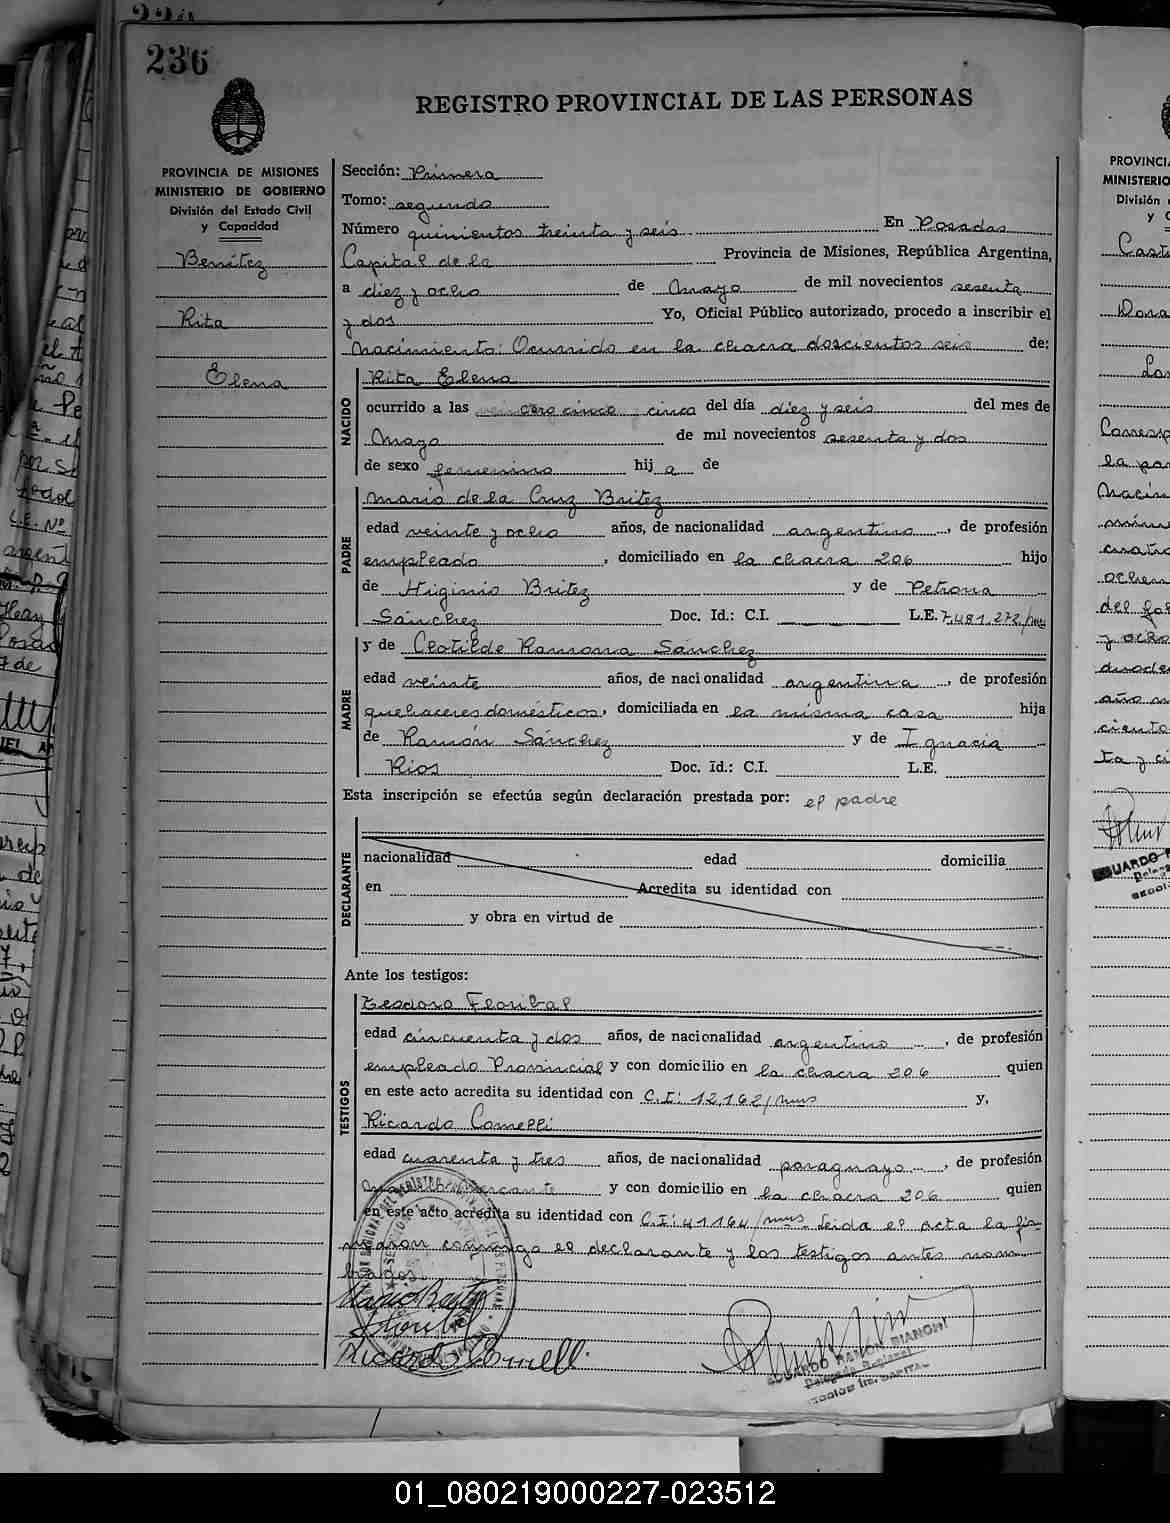 236
REGISTRO PROVINCIAL DE LAS PERSONAS
PROVINCIA DE MISIONES
MINISTERIO DE GOBIERNO
División del Estado Civil
y Capacidad
Benítez
Rita
Elena
Sección: Primera
Tomo: segundo
Número quinientos treinta y seis En Posadas
Capital de la Provincia de Misiones, República Argentina,
a diez y ocho de Mayo de mil novecientos sesenta
y dos Yo, Oficial Público autorizado, procedo a inscribir el
Nacimiento: Ocurrido en la chacra doscientos seis de:
NACIDO
Rita Elena
ocurrido a las cinco del día diez y seis del mes de
Mayo de mil novecientos sesenta y dos
de sexo femenino hij a de
PADRE
Mario de la Cruz Britez
edad veinte y ocho años, de nacionalidad argentino, de profesión
empleado, domiciliado en la chacra 206 hijo
de Higinio Britez y de Petrona
Sánchez Doc. Id.: C.I. L.E. 7.481.272/mns
MADRE
y de Clotilde Ramona Sánchez
edad veinte años, de nacionalidad argentina, de profesión
quehaceres domésticos, domiciliada en la misma casa hija
de Ramón Sánchez y de Ignacia
Rios Doc. Id.: C.I. L.E.
Esta inscripción se efectúa según declaración prestada por: el padre
DECLARANTE
nacionalidad edad domicilia
en Acredita su identidad con
y obra en virtud de
Ante los testigos:
TESTIGOS
Teodoro Floribal
edad cincuenta y dos años, de nacionalidad argentino, de profesión
empleado Provincial y con domicilio en la chacra 206 quien
en este acto acredita su identidad con C.I: 12.162/mns y,
Ricardo Comelli
edad cuarenta y tres años, de nacionalidad paraguayo, de profesión
y con domicilio en la chacra 206 quien
en este acto acredita su identidad con C.I: 41164/mns. Leida el acta la fir-
maron conmigo el declarante y los testigos antes nom-
brados.
Ricardo Comelli
EDUARDO RAMON BIANCHI
Delegado Regional
01_080219000227-023512